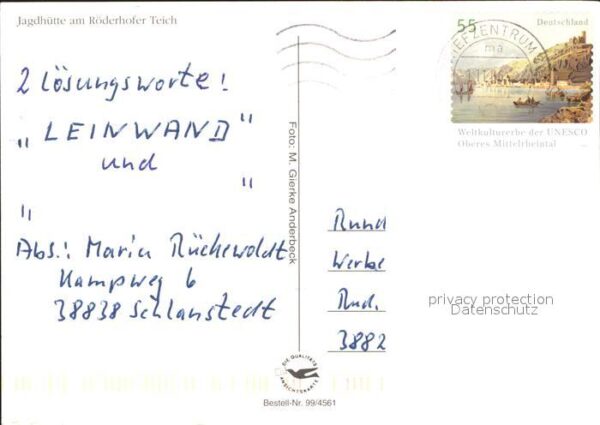 Jagdhütte am Röderhofer Teich
2 Lösungsworte!
„LEINWAND"
und
„ "
Abs.: Maria Rückewoldt
Kampweg 6
38838 Schlanstedt
Foto: M. Gierke Anderbeck
DIE QUALITÄTS
ANSICHTSKARTE
Bestell-Nr. 99/4561
BRIEFZENTRUM
ma
55 Deutschland
Weltkulturerbe der UNESCO
Oberes Mittelrheintal
Rund
Werbe
Rud.
3882
privacy protection
Datenschutz